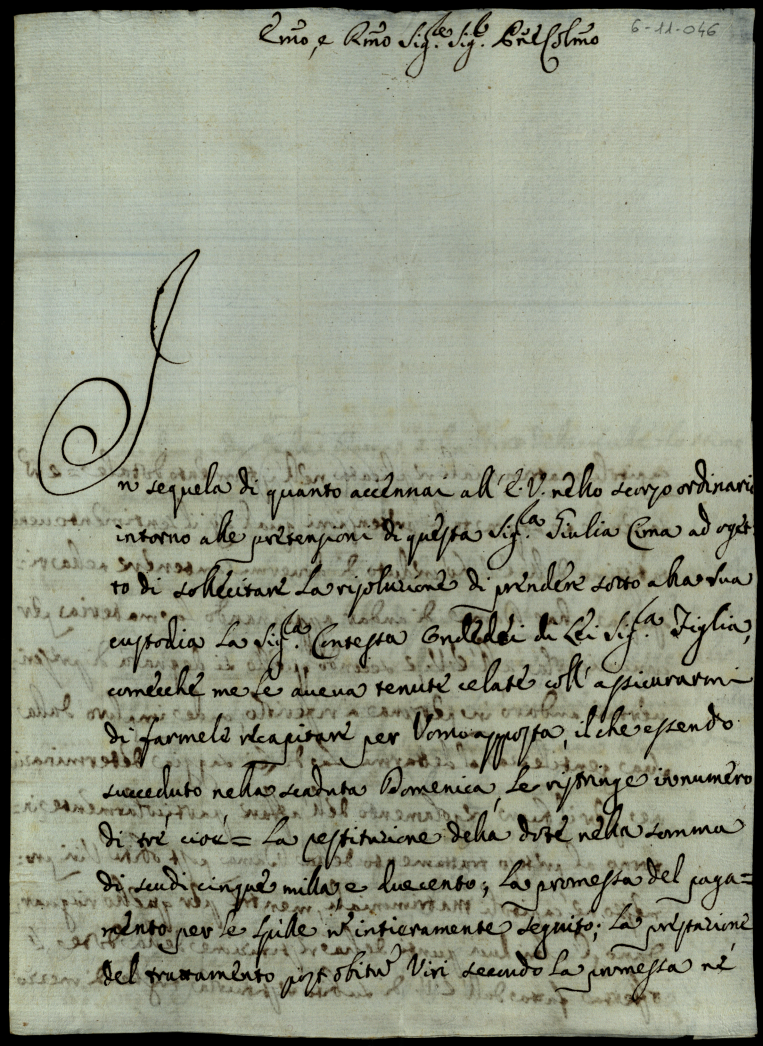 Emo, e Rmo Sig.re Sig.r Pne Colmo
6-11-046
In sequela di quanto accennai all' E. V. nello scorso ordinario
intorno alle pretensioni di questa Sig.ra Giulia Cima ad oget-
to di sollecitare la risoluzione di prendere sotto alla sua
custodia la Sig.ra Contessa di Lei Sig.ra Figlia,
comecche me le aveva tenute celate coll' assicurarmi
di farmele recapitare per Vomo apposta, il che essendo
succeduto nella scaduta Domenica, le ristringe in numero
di trè cioè = La restituzione della dote nella somma
di scudi cinque milla e duecento; la promessa del paga=
mento per le spille nè intieramente seguito; la prestazione
del trattamento post obitū Viri secondo la promessa ne'